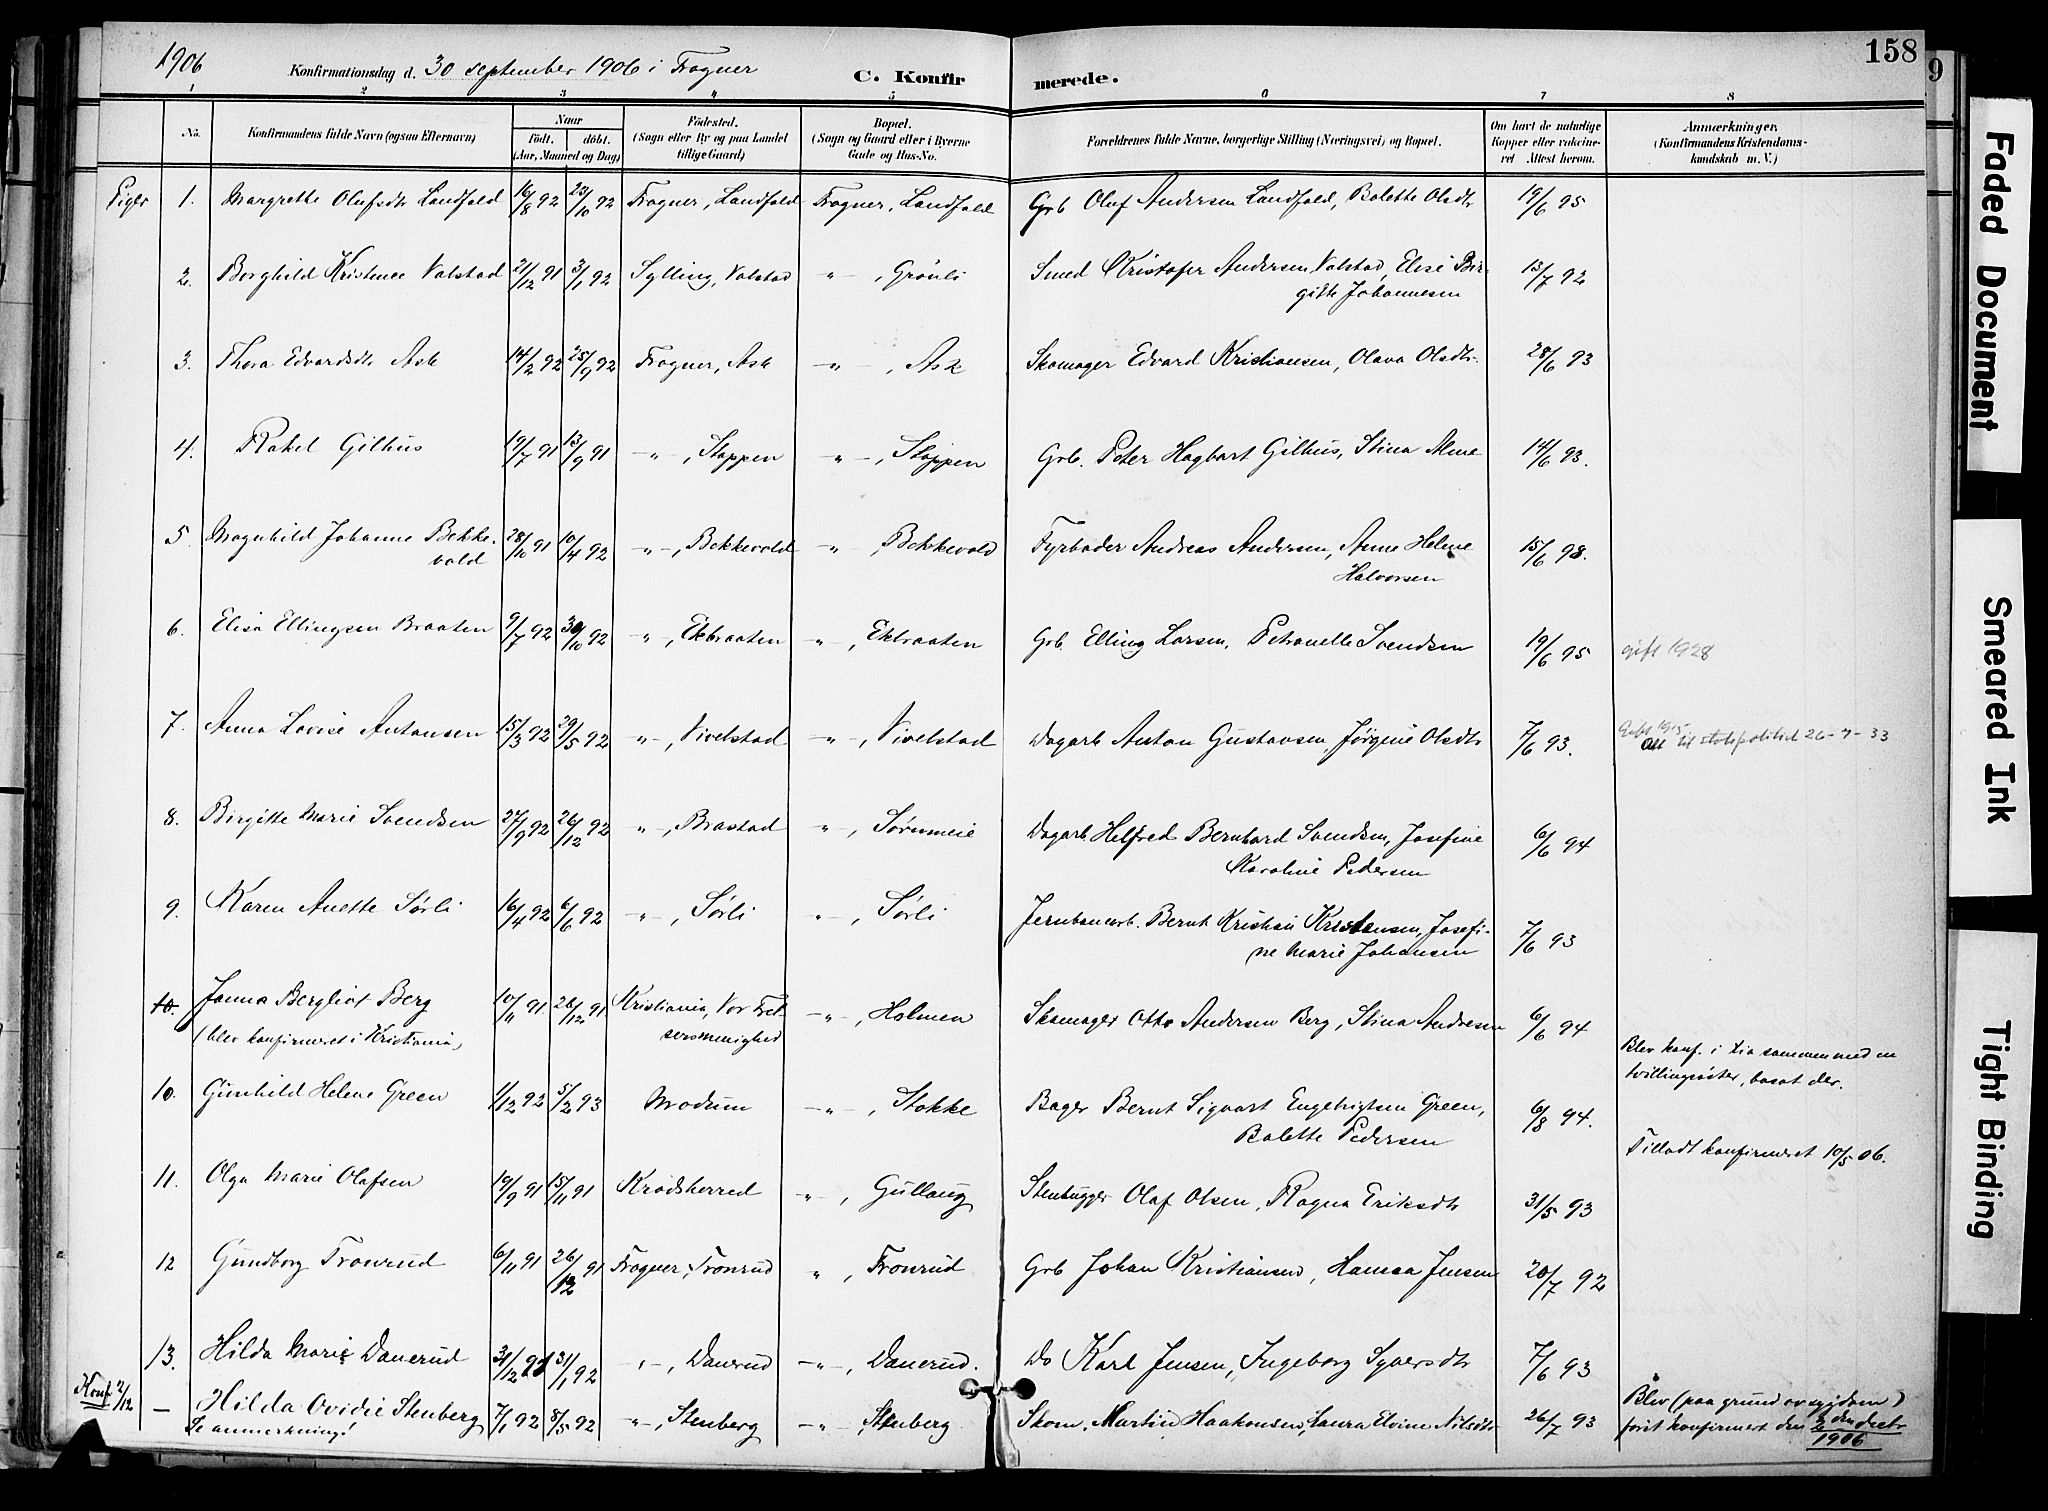 1906 Konfirmationsdag d. 30 september 1906 i Frogner C. Konfirmerede. 158
1 2 3 4 5 6 7 8
No. Konfirmandens fulde Navn (ogsaa Efternavn) Naar födt. döbt. (Aar, Maaned og Dag) Födested. (Sogn eller By og paa Landet tillige Gaard) Bopæl. (Sogn og Gaard eller i Byerne Gade og Hus-No. Forældrenes fulde Navne, borgerlige Stilling (Næringsvei) og Bopæl. Om havt de naturlige Kopper eller vakcineret. Attest herom. Anmærkninger. (Konfirmandens Kristendomskundskab m. V.)
Piger 1. Margrethe Olufsdtr Landfald 16/8 92 23/10 92 Frogner, Landfald Frogner, Landfald Grb Oluf Andersen Landfald, Bolette Olsdtr 19/6 95
2. Borghild Kristence Valstad 21/12 91 3/1 92 Sylling, Valstad -"-, Grönli Smed Kristofer Andersen Valstad, Elise Bir-
gitte Johannesen 13/7 92
3. Thora Edvardsdtr Ask 14/2 92 25/9 92 Frogner, Ask -"-, Ask Skomager Edvard Kristiansen, Olava Olsdtr. 28/6 93
4. Rakel Gilhus 19/7 91 13/9 91 -"-, Stoppen -"-, Stoppen Grb. Peter Hagbart Gilhus, Stina Alme 14/6 93.
5. Magnhild Johanne Bekke-
vold 28/11 91 10/4 92 -"-, Bekkevold -"-, Bekkevold Fyrböder Andreas Andersen, Anne Helene
Halvorsen 15/6 98.
6. Elisa Ellingsen Braaten 9/7 92 30/10 92 -"-, Ekbraaten -"-, Ekbraaten Grb. Elling Larsen, Petronelle Svendsen 19/6 95 gift 1928
7. Anna Lovise Antonsen 15/3 92 29/5 92 -"-, Vivelstad -"-, Vivelstad Dagarb Anton Gustavsen, Jørgine Olsdtr 7/6 93. Gift 1915
Att til statspolitiet 26-7-33
8. Birgitte Marie Svendsen 27/9 92 26/12 92 -"-, Brastad -"-, Sørumeie Dagarb Helfred Bernhard Svendsen, Josefine
Karoline Pedersen 6/6 94
9. Karen Anette Sørli 16/4 92 6/6 92 -"-, Sørli -"-, Sørli Jernbanearb. Bernt Kristian Kristensen, Josefi-
ne Marie Johansen 7/6 93
10. Janna Bergliot Berg 10/11 91 26/12 91 Kristiania, Vor Frel-
sersmenighed -"-, Holmen Skomager Otto Andersen Berg, Stina Andresen 6/6 94
(blev konfirmeret i Kristiania) Blev konf. i Kia sammen med en
tvillingsöster, bosat der.
10. Gunhild Helene Green 1/12 92 5/2 93 Modum -"-, Stokke Bager Bernt Sigvart Engebrigtsen Green,
Bolette Pedersen 6/8 94. Tilladt konfirmeret 10/5 06.
11. Olga Marie Olafsen 19/9 91 15/11 91 Krødsherred -"-, Gullaug Stenhugger Olaf Olsen, Ragna Eriksdtr 31/5 93
12 Gundborg Tronrud 6/11 91 26/12 91 Frogner, Tronrud ", Tronrud Grb Johan Kristiansen, Hanna Jensen 20/7 92
13. Hilda Marie Danerud 31/12 91 31/1 92 -"-, Danerud -"-, Danerud. Do Karl Jensen, Ingeborg Syversdtr 7/6 93
Konf. 2/12 - Hilda Ovidie Stenberg 7/1 92 8/5 92 -"-, Stenberg -"-, Stenberg Skom. Martin Haakonsen, Laura Elvine Nilsdtr 26/7 93 Blev (paa grund av sygdom)
Se anmerkning! först konfirmert den 2den decbr
1906
Faded Document
Smeared Ink
Tight Binding
9